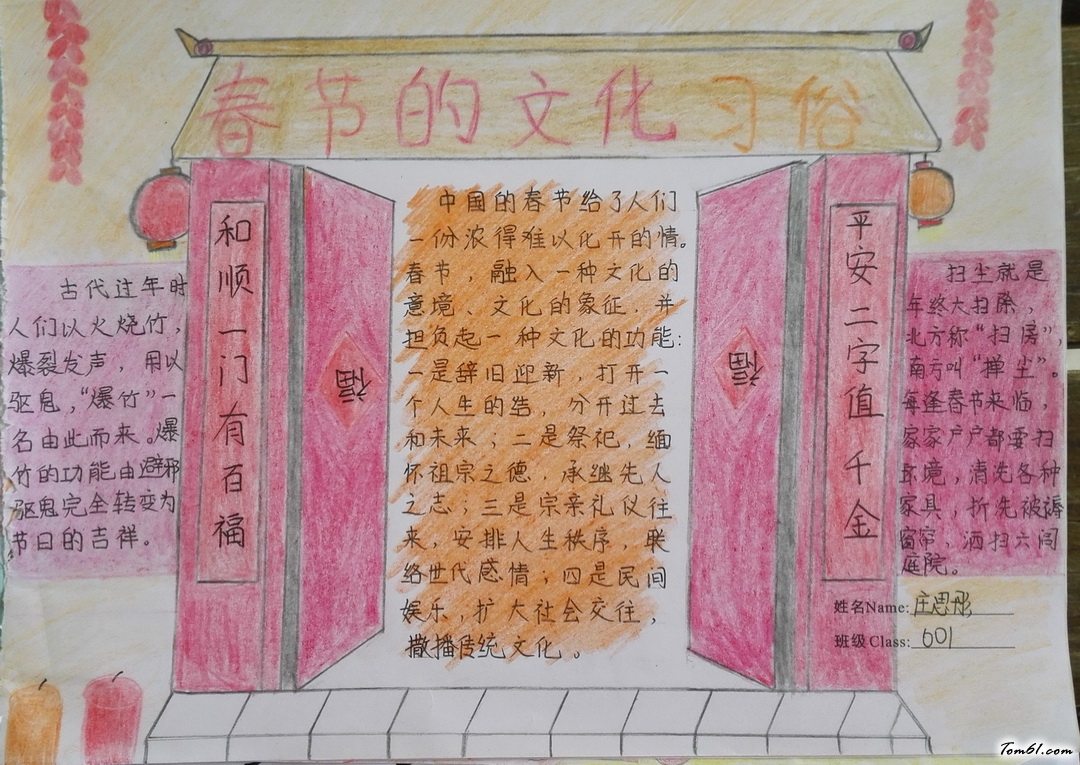 春节的文化习俗
和顺一门有百福
平安二字值千金
福
福
古代过年时
人们以火烧竹，
爆裂发声，用以
驱鬼，“爆竹”一
名由此而来。爆
竹的功能由避邪
驱鬼完全转变为
节日的吉祥。
中国的春节给了人们
一份浓得难以化开的情。
春节，融入一种文化的
意境、文化的象征，并
担负起一种文化的功能：
一是辞旧迎新，打开一
个人生的结，分开过去
和未来；二是祭祀，缅
怀祖宗之德，承继先人
之志；三是宗亲礼仪往
来，安排人生秩序，联
络世代感情；四是民间
娱乐，扩大社会交往，
撒播传统文化。
扫尘就是
年终大扫除，
北方称“扫房”，
南方叫“掸尘”。
每逢春节来临，
家家户户都要扫
环境，清洗各种
家具，拆洗被褥
窗帘，洒扫六闾
庭院。
姓名Name:庄思彤
班级Class:601
Tom61.com